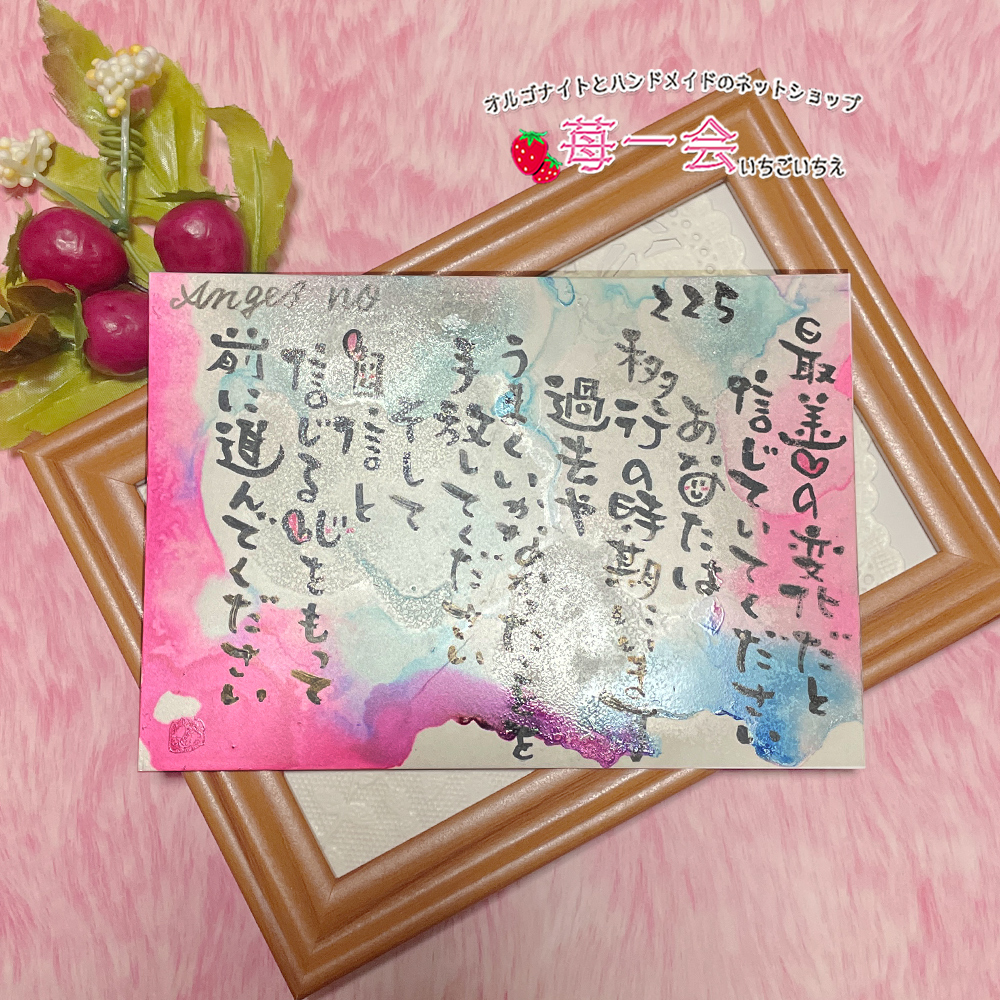 オルゴナイトとハンドメイドのネットショップ
苺一会
いちごいちえ
Angel no
225
最善の変化だと
信じていてください
あなたは
移行の時期に
過去や
うまくいかなかったことを
手放してください
そして
自信と
信じる心をもって
前に進んでください